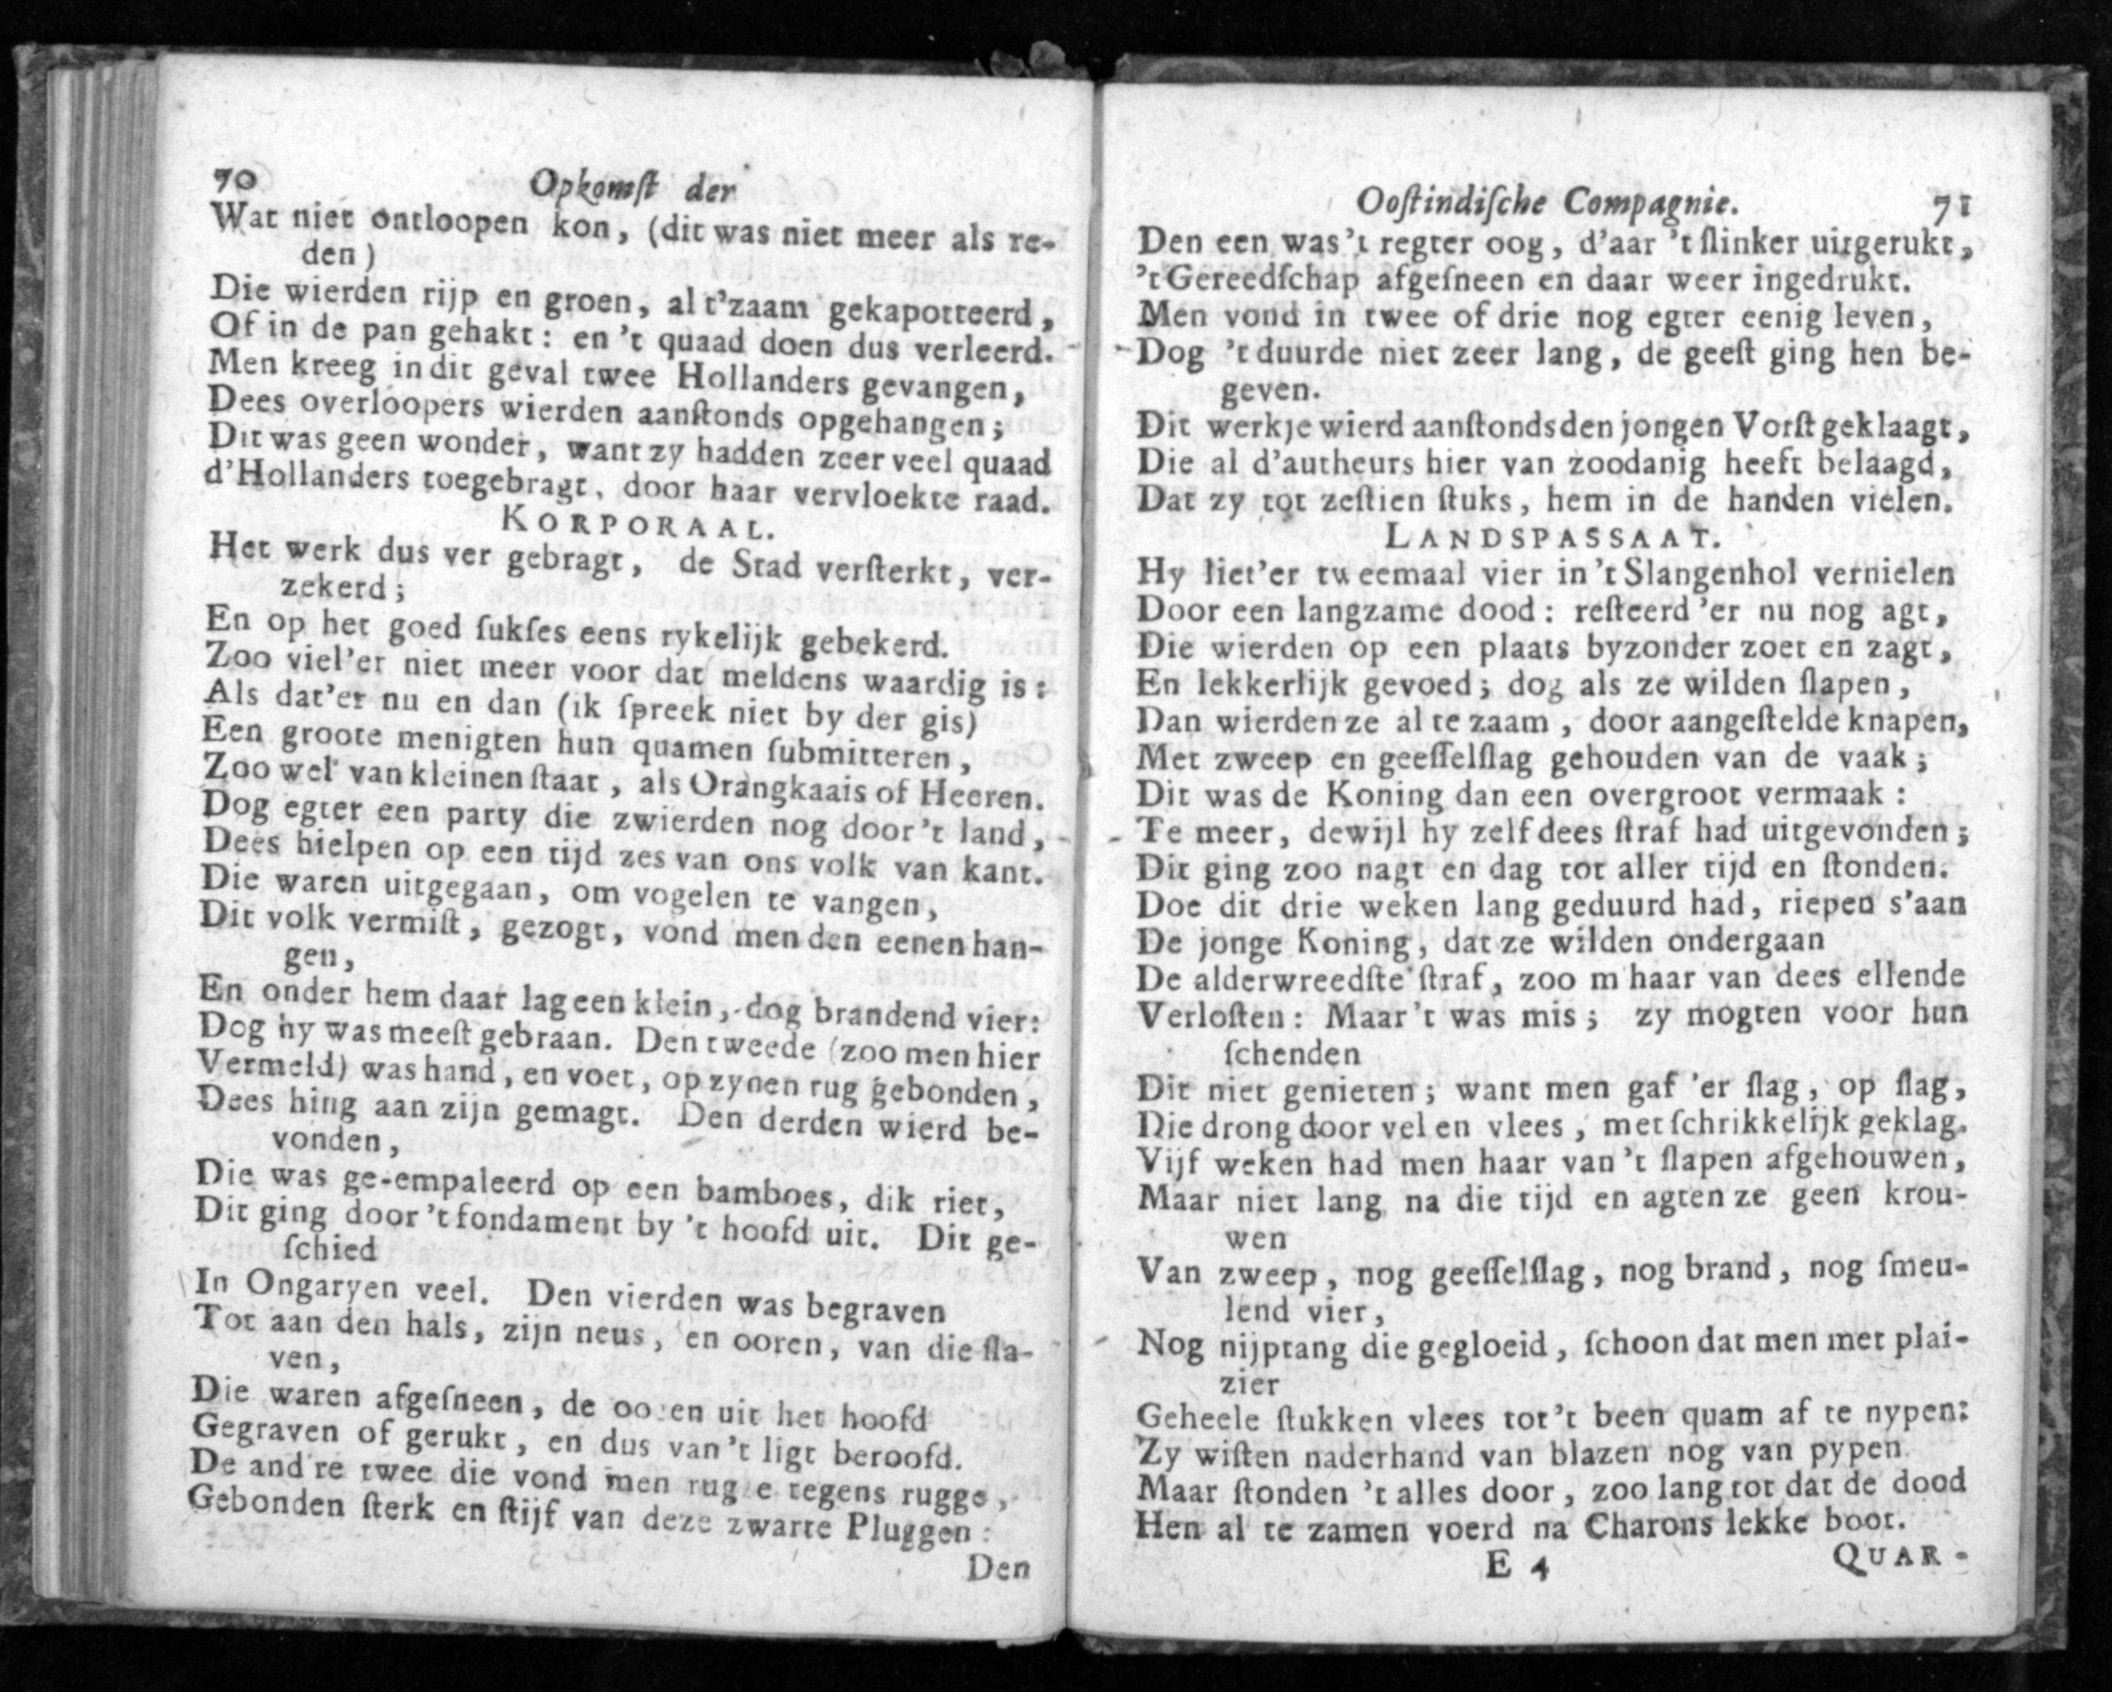 70 Opkomſt der
Wat niet ontloopen kon, (dit was niet meer als re-
den)
Die wierden rijp en groen, al t'zaam gekapotteerd,
Of in de pan gehakt: en 't quaad doen dus verleerd.
Men kreeg in dit geval twee Hollanders gevangen,
Dees overloopers wierden aanſtonds opgehangen;
Dit was geen wonder, want zy hadden zeer veel quaad
d'Hollanders toegebragt, door haar vervloekte raad.
KORPORAAL.
Het werk dus ver gebragt, de Stad verſterkt, ver-
zekerd;
En op het goed ſukſes eens rykelijk gebekerd.
Zoo viel'er niet meer voor dat meldens waardig is:
Als dat'er nu en dan (ik ſpreek niet by der gis)
Een groote menigten hun quamen ſubmitteren,
Zoo wel van kleinen ſtaat, als Orangkaais of Heeren.
Dog egter een party die zwierden nog door 't land,
Dees hielpen op een tijd zes van ons volk van kant.
Die waren uitgegaan, om vogelen te vangen,
Dit volk vermiſt, gezogt, vond men den eenen han-
gen,
En onder hem daar lag een klein, dog brandend vier:
Dog hy was meeſt gebraan. Den tweede (zoo men hier
Vermeld) was hand, en voet, op zynen rug gebonden,
Dees hing aan zijn gemagt. Den derden wierd be-
vonden,
Die was ge-empaleerd op een bamboes, dik riet,
Dit ging door 't fondament by 't hoofd uit. Dit ge-
ſchied
In Ongaryen veel. Den vierden was begraven
Tot aan den hals, zijn neus, en ooren, van die ſla-
ven,
Die waren afgeſneen, de ooren uit het hoofd
Gegraven of gerukt, en dus van 't ligt beroofd.
De and're twee die vond men rugge tegens rugge,
Gebonden ſterk en ſtijf van deze zwarte Pluggen:
Den
Ooſtindiſche Compagnie. 71
Den een was 't regter oog, d'aar 't ſlinker uitgerukt,
't Gereedſchap afgeſneen en daar weer ingedrukt.
Men vond in twee of drie nog egter eenig leven,
Dog 't duurde niet zeer lang, de geeſt ging hen be-
geven.
Dit werkje wierd aanſtonds den jongen Vorſt geklaagt,
Die al d'autheurs hier van zoodanig heeft belaagd,
Dat zy tot zeſtien ſtuks, hem in de handen vielen.
LANDSPASSAAT.
Hy liet'er tweemaal vier in 't Slangenhol vernielen
Door een langzame dood: reſteerd 'er nu nog agt,
Die wierden op een plaats byzonder zoet en zagt,
En lekkerlijk gevoed; dog als ze wilden ſlapen,
Dan wierden ze al te zaam, door aangeſtelde knapen,
Met zweep en geeſſelſlag gehouden van de vaak;
Dit was de Koning dan een overgroot vermaak:
Te meer, dewijl hy zelf dees ſtraf had uitgevonden;
Dit ging zoo nagt en dag tot aller tijd en ſtonden.
Doe dit drie weken lang geduurd had, riepen s'aan
De jonge Koning, dat ze wilden ondergaan
De alderwreedſte ſtraf, zoo m haar van dees ellende
Verloſten: Maar 't was mis; zy mogten voor hun
ſchenden
Dit niet genieten; want men gaf 'er ſlag, op ſlag,
Die drong door vel en vlees, met ſchrikkelijk geklag.
Vijf weken had men haar van 't ſlapen afgehouwen,
Maar niet lang na die tijd en agten ze geen krou-
wen
Van zweep, nog geeſſelſlag, nog brand, nog ſmeu-
lend vier,
Nog nijptang die gegloeid, ſchoon dat men met plai-
zier
Geheele ſtukken vlees tot 't been quam af te nypen:
Zy wiſten naderhand van blazen nog van pypen
Maar ſtonden 't alles door, zoo lang tot dat de dood
Hen al te zamen voerd na Charons lekke boot.
E 4 QUAR-